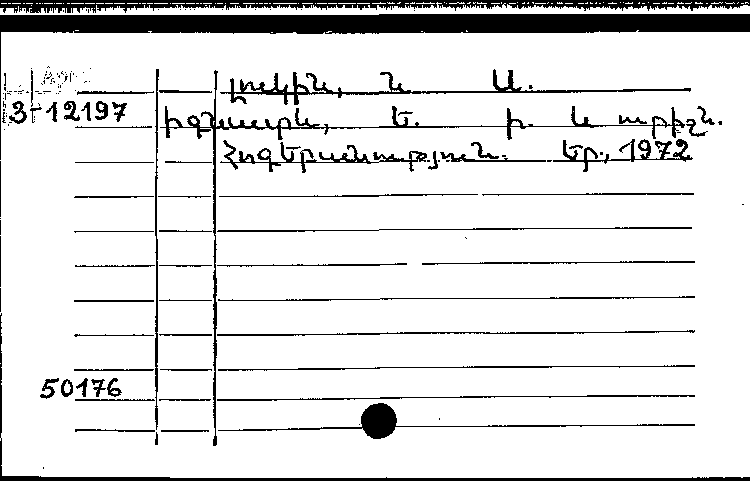 3-12197
Լուկին, Ն Ս.
Իգնատև, Ե. Ի. և ուրիշն.
Հոգեբանություն. Եր., 1972
50176